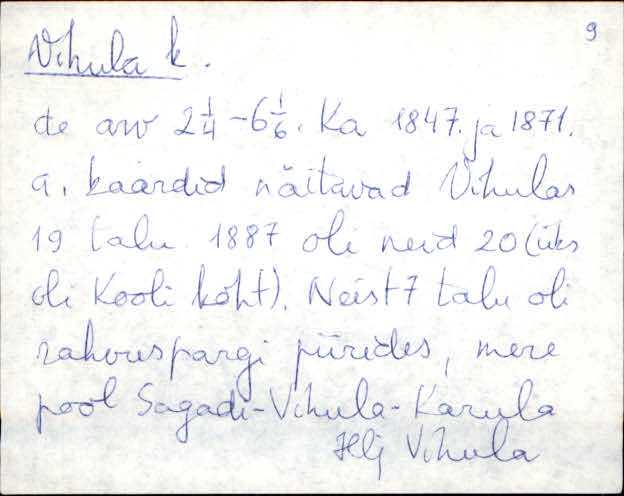 9
Vihula k.
de arv 2 1/4 - 6 1/6. Ka 1847. ja 1871.
a. kaardid näitavad Vihulas
19 talu. 1887 oli neid 20 (üks
oli Kooli koht). Neist 7 talu oli
rahvuspargi piirides, mere
pool Sagadi-Vihula-Karula
Vihula